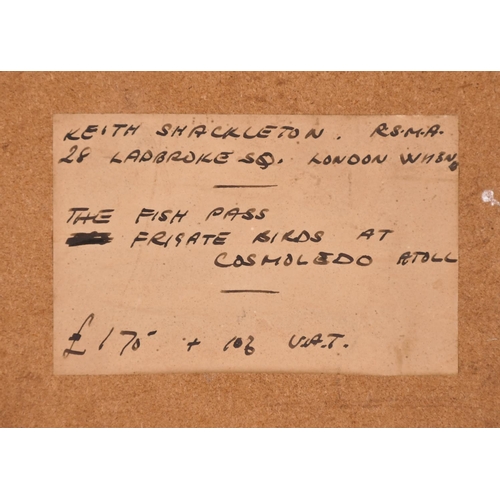 KEITH SHACKLETON. R.S.M.A.
28 LADBROKE SQ. LONDON W113NB
THE FISH PASS
FRIGATE BIRDS AT
COSMOLEDO ATOLL
£175 + 10% V.A.T.